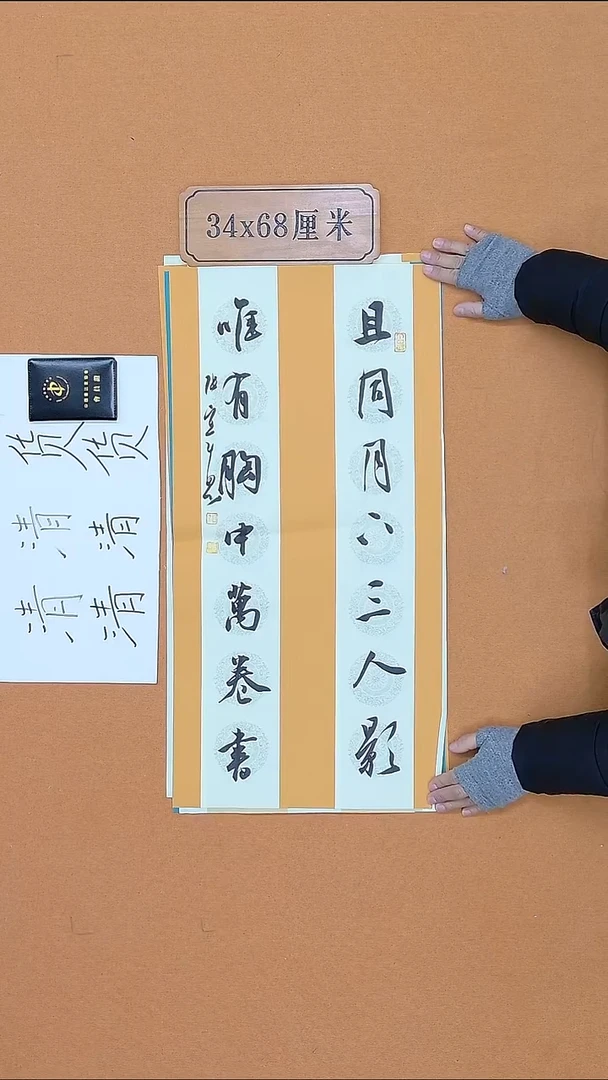 34x68厘米
且同月下三人影
唯有胸中萬卷書
货货
清清
清清